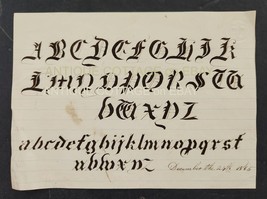 ABCDEFGHIJK
LMNOPQRSTU
VWXYZ
abcdefghijklmnopqrst
uvwxyz
December the 24th